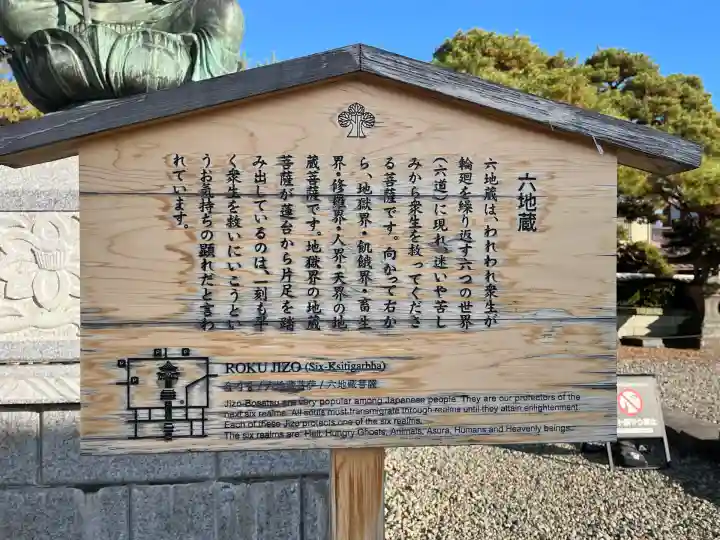 六地蔵
六地蔵は、われわれ衆生が
輪廻を繰り返す六つの世界
（六道）に現れ、迷いや苦し
みから衆生を救ってくださ
る菩薩です。向かって右か
ら、地獄界・餓鬼界・畜生
界・修羅界・人界・天界の地
蔵菩薩です。地獄界の地蔵
菩薩が蓮台から片足を踏
み出しているのは、一刻も早
く衆生を救いにいこうとい
うお気持ちの顕れだといわ
れています。
ROKU JIZO (Six-Ksitigarbha)
/ 六地藏菩萨 / 六地藏菩薩
Jizo-Bosatsu are very popular among Japanese people. They are our protectors of the
next six realms. All souls must transmigrate through realms until they attain enlightenment.
Each of these Jizo protects one of the six realms.
The six realms are: Hell, Hungry Ghosts, Animals, Asura, Humans and Heavenly beings.